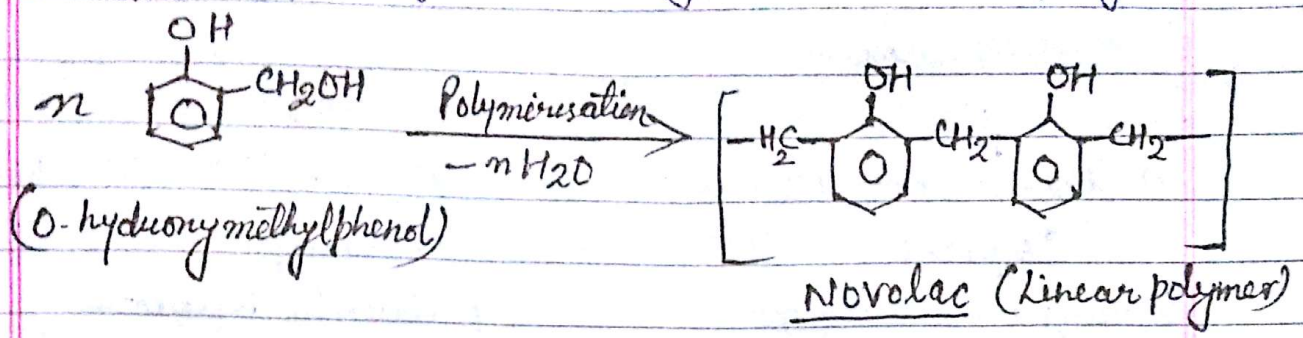 OH OH OH
n CH2OH Polymerisation -H2C- -CH2- -CH2-
-nH2O
(O-hydroxymethylphenol)
Novolac (Linear polymer)